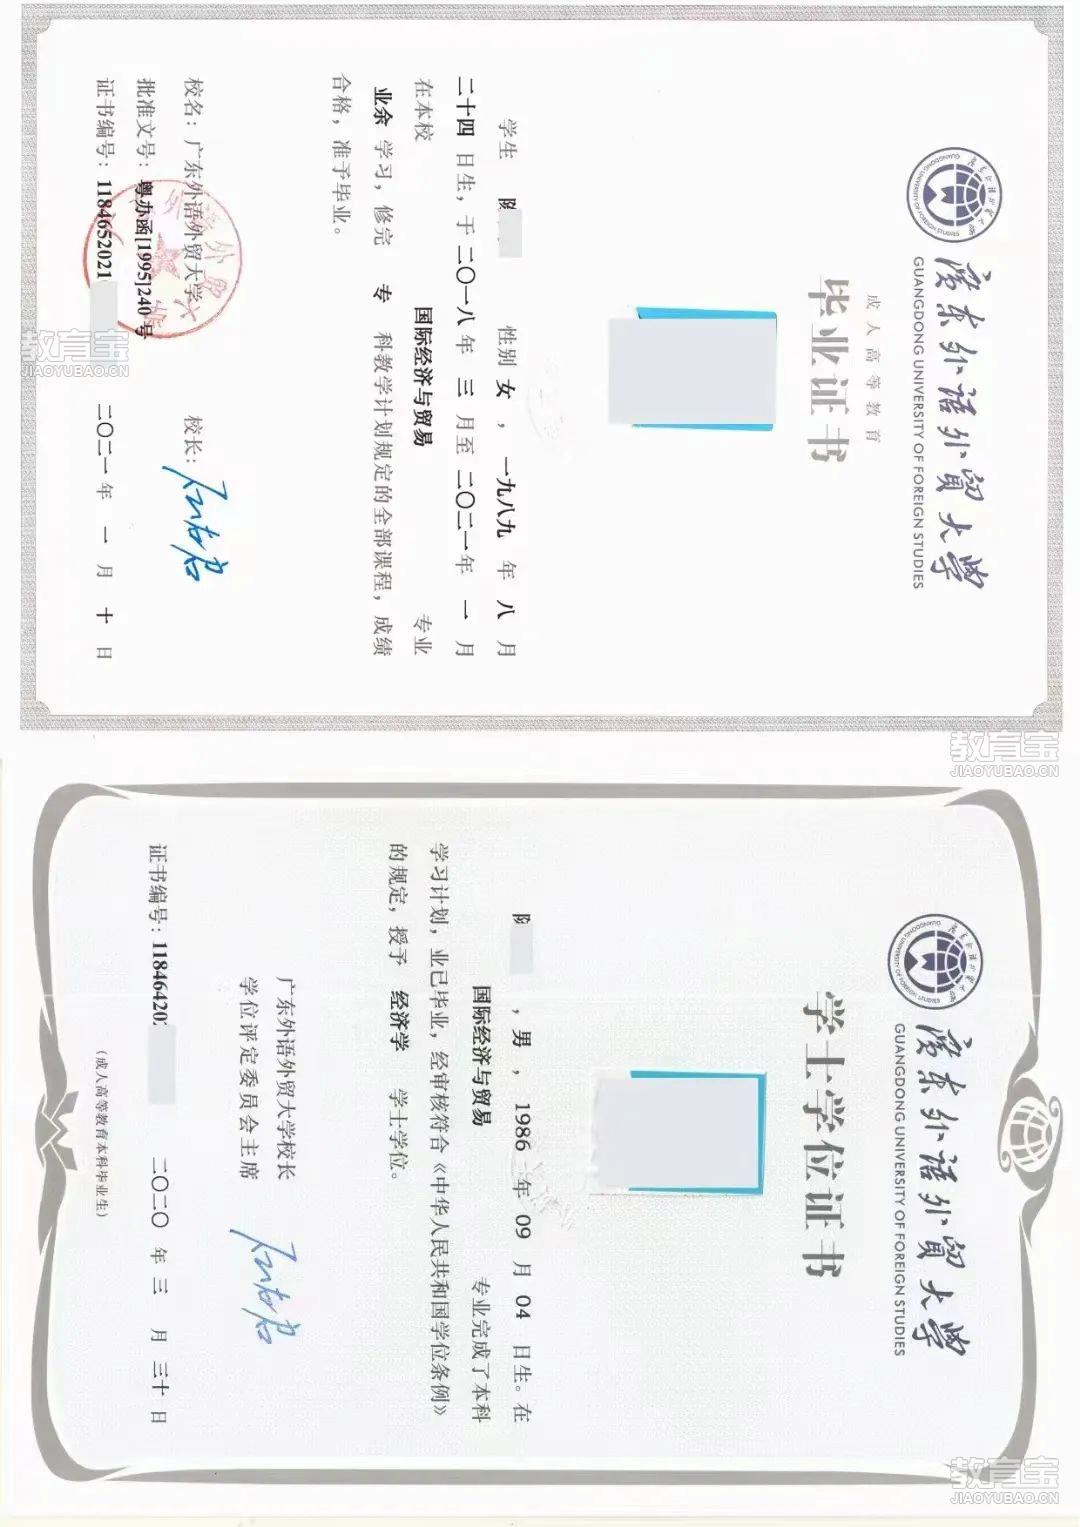 广东外语外贸大学
GUANGDONG UNIVERSITY OF FOREIGN STUDIES
成人高等教育
毕业证书
学生 陈 性别 女 ， 一九八九 年 八 月
二十四 日生，于 二〇一八 年 三 月至 二〇二一 年 一 月
在本校 国际经济与贸易 专业
业余 学习，修完 专 科教学计划规定的全部课程，成绩
合格，准予毕业。
校名：广东外语外贸大学 校长：
批准文号：粤办函[1995]240号
证书编号：1184652021 二〇二一 年 一 月 十 日
教育宝
JIAOYUBAO.CN
教育宝
JIAOYUBAO.CN
广东外语外贸大学
GUANGDONG UNIVERSITY OF FOREIGN STUDIES
学士学位证书
，男，1986 年 09 月 04 日生。在
国际经济与贸易 专业完成了本科
学习计划，业已毕业，经审核符合《中华人民共和国学位条例》
的规定，授予 经济学 学士学位。
广东外语外贸大学校长
学位评定委员会主席
证书编号：118464202 二〇二〇 年 三 月 三十 日
（成人高等教育本科毕业生）
教育宝
JIAOYUBAO.CN